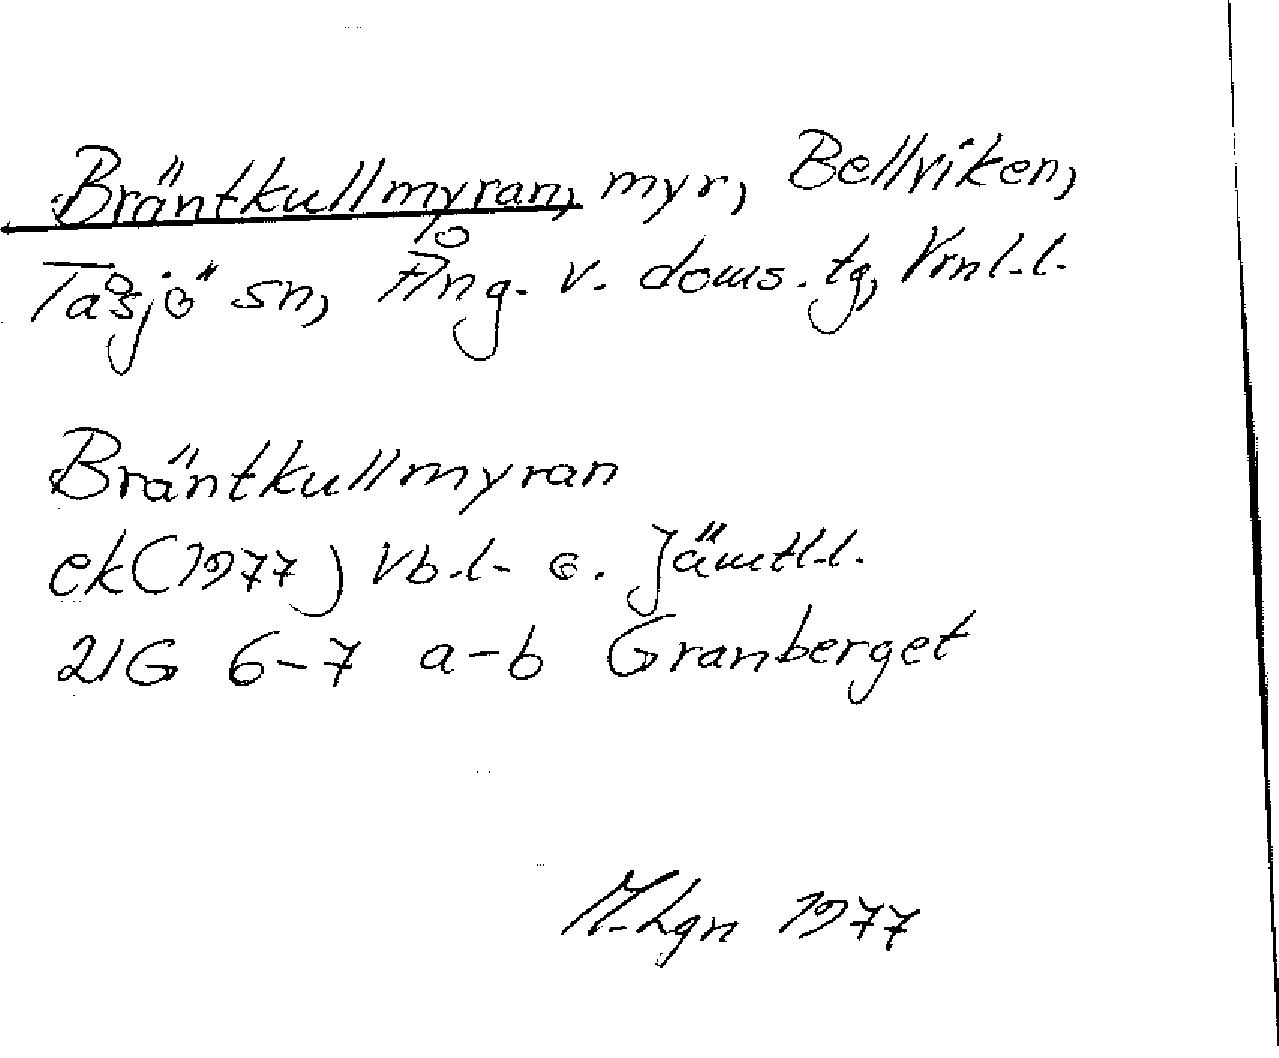 Bräntkullmyran, myr, Bellviken,
Tåsjö sn, Ång. v. doms. tg, Vrnl.l.
Bräntkullmyran
ek (1977) Vb.l. o. Jämtl.l.
21G 6-7 a-b Granberget
M.Lgn 1977